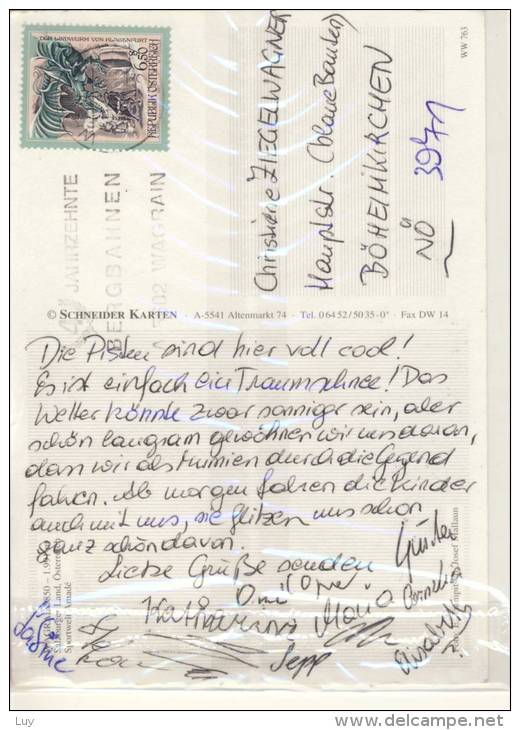 DER LINDWURM VON KLAGENFURT
6.50
REPUBLIK ÖSTERREICH
JAHRZEHNTE
BERGBAHNEN
WAGRAIN
WW 763
Christiane ZIEGELWAGNER
Hauptstr.
BÖHEIMKIRCHEN
NÖ 3971
© SCHNEIDER KARTEN · A-5541 Altenmarkt 74 · Tel. 06452/5035-0* · Fax DW 14
Die Pisten sind hier voll cool!
Es ist einfach ein Traumschnee! Das
Wetter könnte zwar sonniger sein, aber
schön langsam gewöhnen wir uns daran,
dass wir als Mumien durch die Gegend
fahren. Ab morgen fahren die Kinder
auch mit uns, sie flitzen uns schon
ganz schön davon.
Liebe Grüße senden
Omi Opi
Günter
Katharina
Maria
Cornelia
Elisabeth
Sepp
Sabine
Salzburger Land, Österreich
Sportwelt Amadé
Josef Mallaun
Luy
delcampe.net